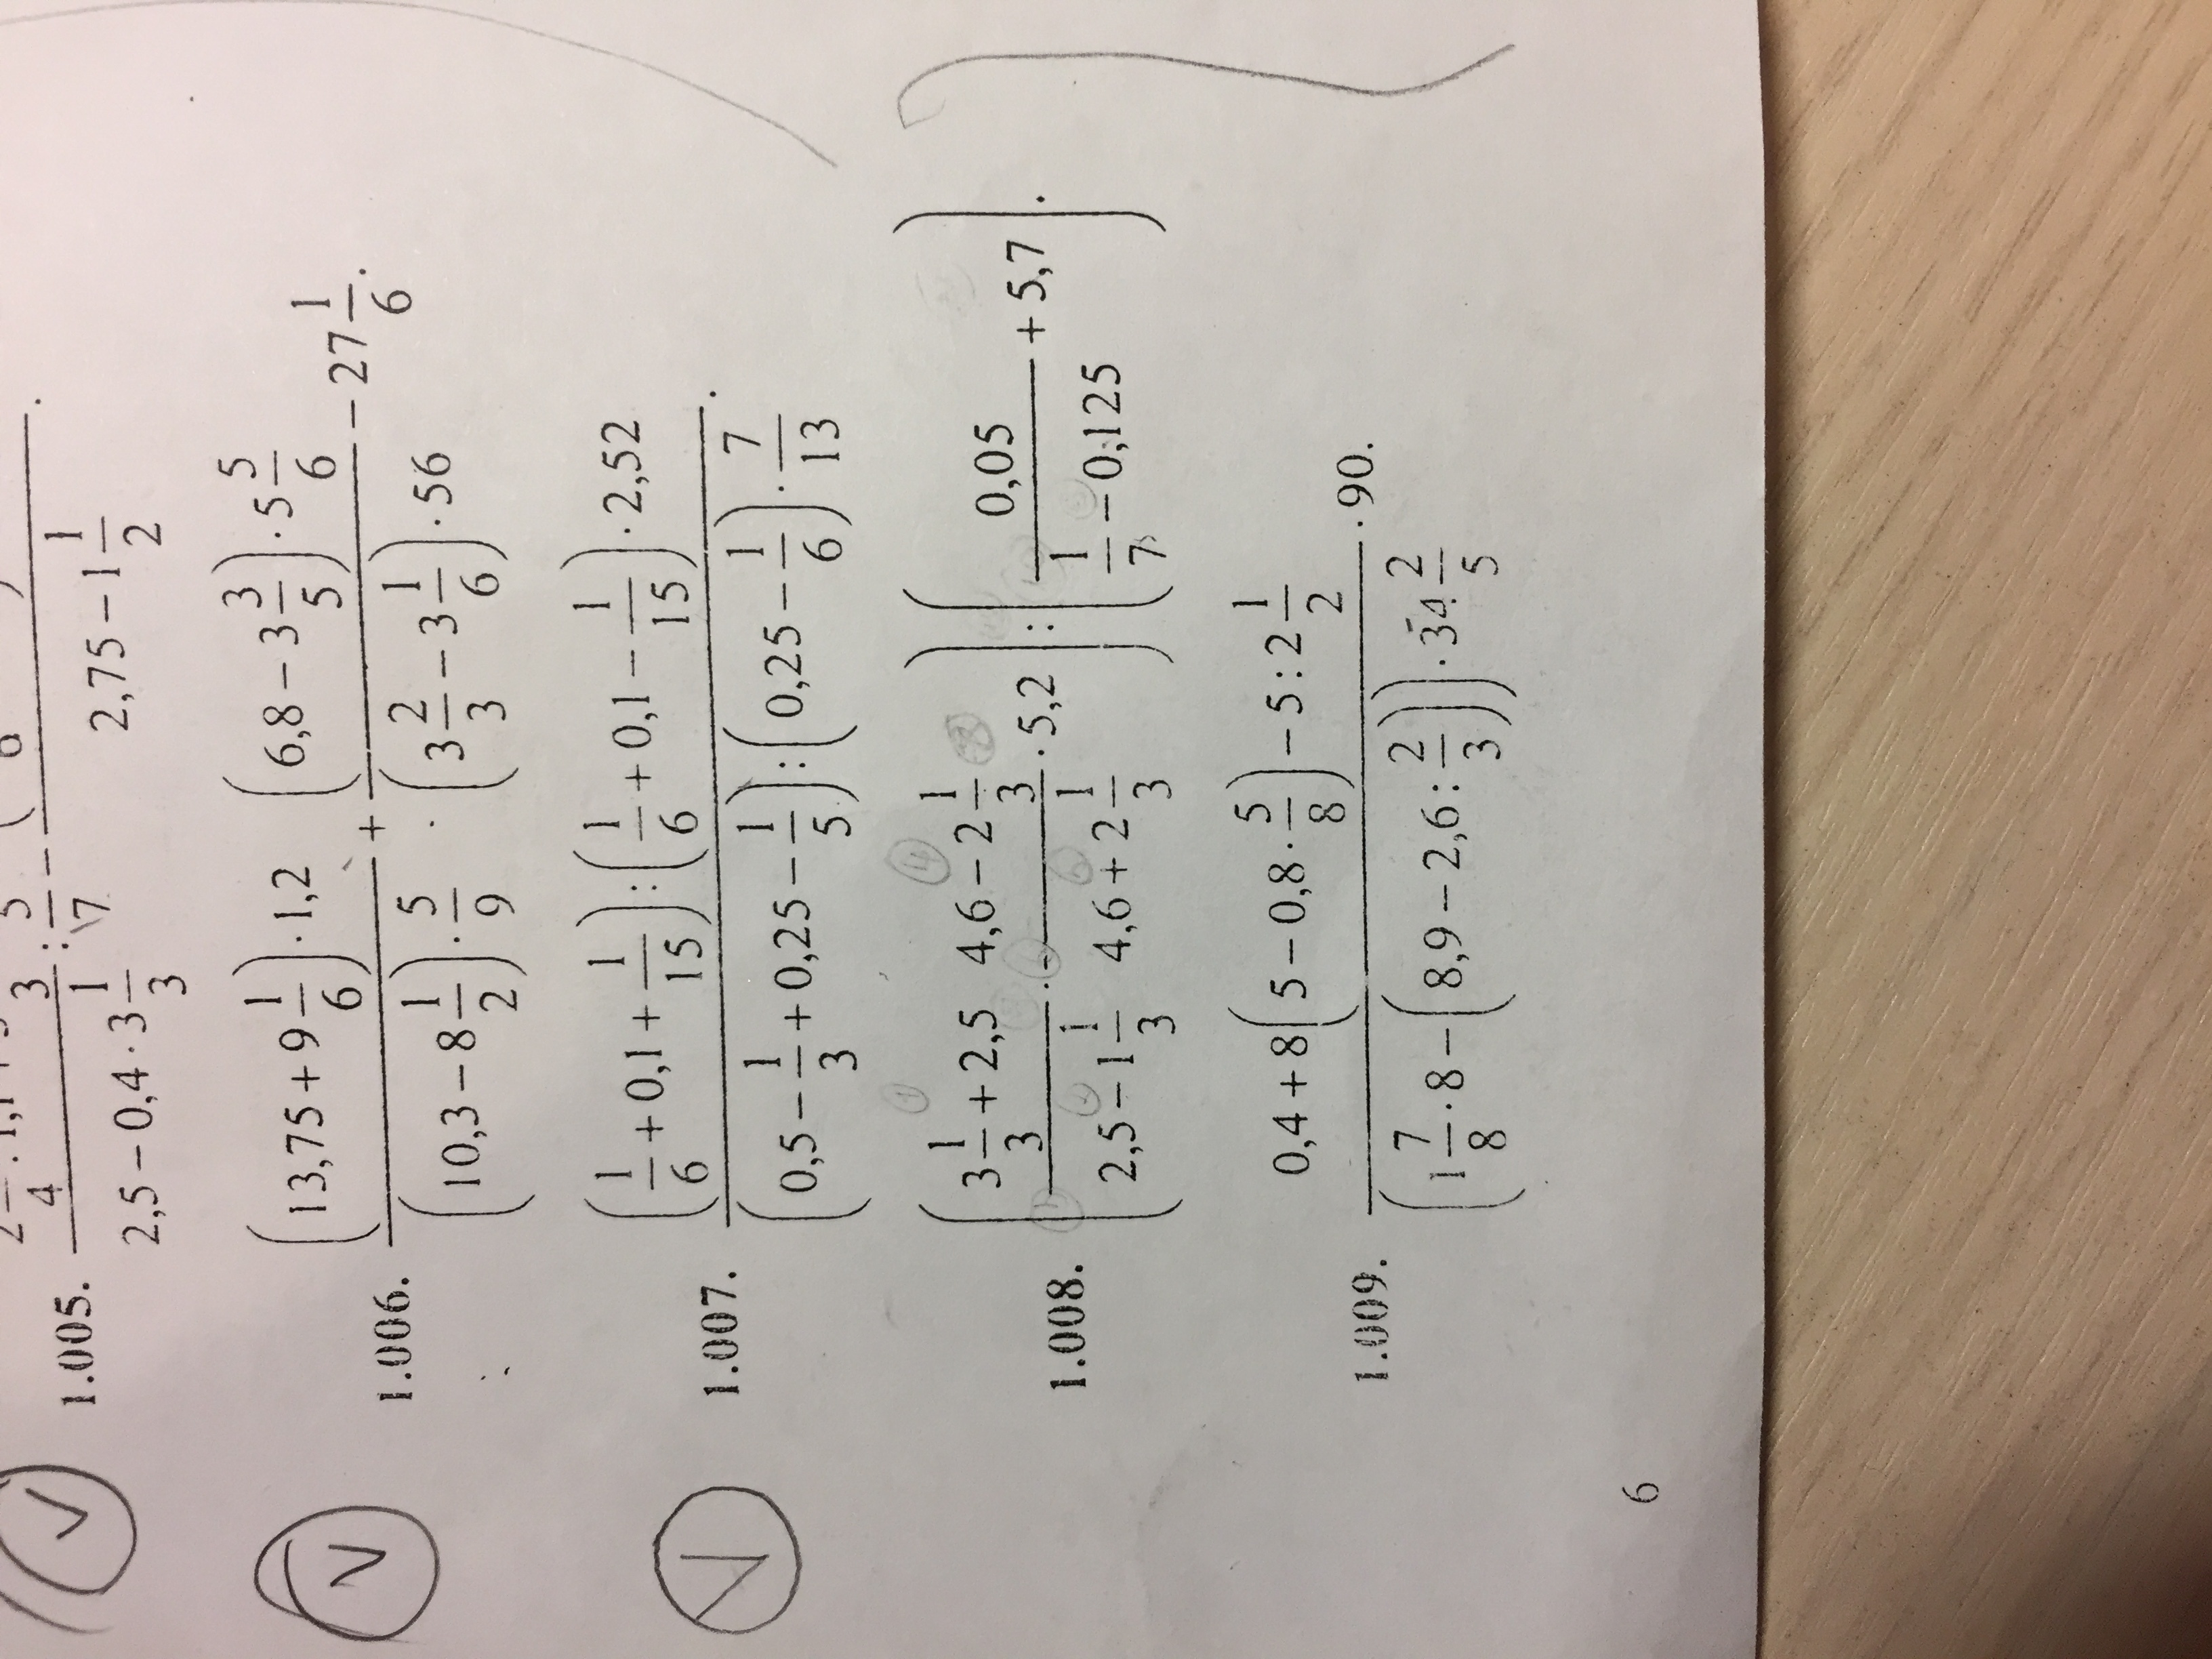 1.005. 2,5 − 0,4 · 3 1/3 : 5/7 − 2,75 − 1 1/2 .
1.006. (13,75 + 9 1/6) · 1,2 / (10,3 − 8 1/2) · 5/9 + (6,8 − 3 3/5) · 5 5/6 / (3 2/3 − 3 1/6) · 56 − 27 1/6.
1.007. (1/6 + 0,1 + 1/15) : (1/6 + 0,1 − 1/15) · 2,52 / (0,5 − 1/3 + 0,25 − 1/5) : (0,25 − 1/6) · 7/13 .
1.008. (3 1/3 + 2,5 / 2,5 − 1 1/3 · 4,6 − 2 1/3 / 4,6 + 2 1/3 · 5,2) : (0,05 / 1/7 − 0,125 + 5,7).
1.009. 0,4 + 8(5 − 0,8 · 5/8) − 5 : 2 1/2 / (1 7/8 · 8 − (8,9 − 2,6 : 2/3)) · 34 2/5 · 90.
6